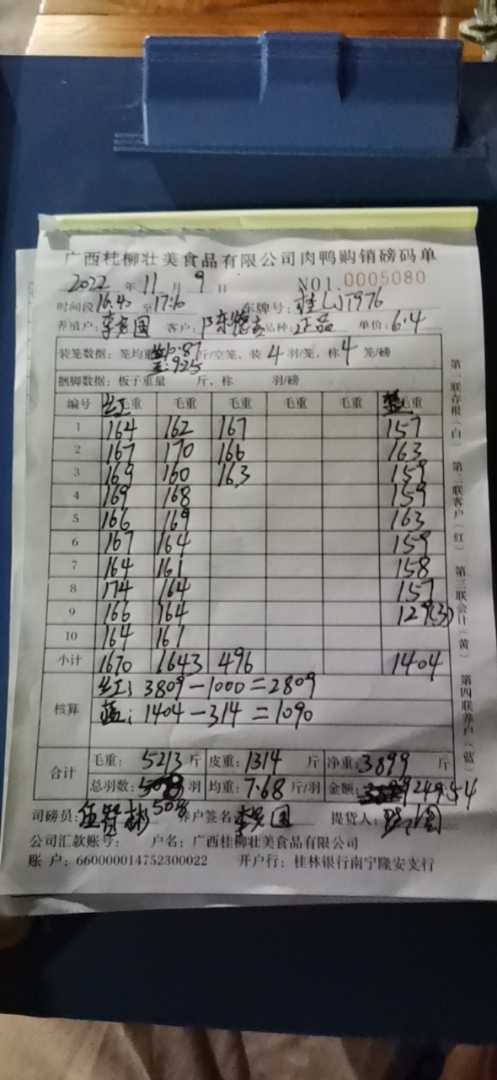 广西桂柳壮美食品有限公司肉鸭购销磅码单
2022 年 11 月 9 日 NO1.0005080
时间段 16.40 至 17:10 车牌号: 桂LJ7976
养殖户: 李定国 客户: 品种: 正品 单价: 6.4
装笼数据: 笼均重 斤/空笼, 装 4 羽/笼, 称 4 笼/磅
9.25
捆脚数据: 板子重量 斤, 称 羽/磅
编号 红毛重 毛重 毛重 毛重 毛重 蓝毛重
1 164 162 167 157
2 167 170 166 163
3 169 160 163 159
4 169 168 159
5 166 169 163
6 167 164 159
7 164 161 158
8 174 164 157
9 166 164 129(3)
10 164 161
小计 1670 1643 496 1404
核算 红: 3809-1000=2809
蓝: 1404-314=1090
合计 毛重: 5213 斤 皮重: 1314 斤 净重: 3899 斤
总羽数: 羽 均重: 7.68 斤/羽 金额: 249.54
司磅员: 508 养户签名: 李定国 提货人:
公司汇款账号: 户名: 广西桂柳壮美食品有限公司
账 户: 660000014752300022 开户行: 桂林银行南宁隆安支行
第一联存根(白) 第二联客户(红) 第三联会计(黄) 第四联养户(蓝)